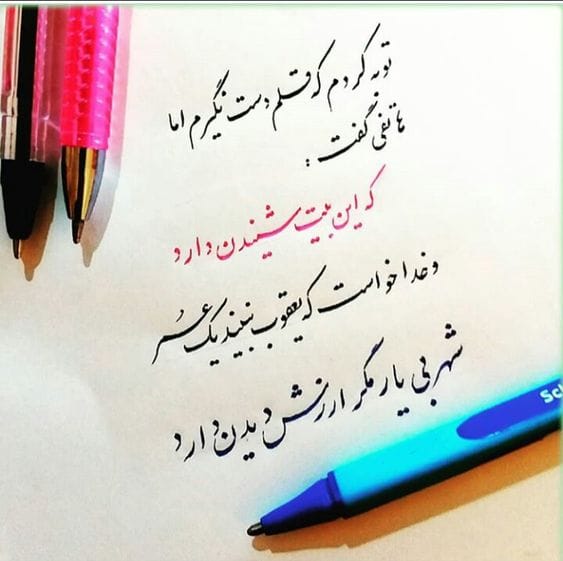 توبه کردم که قلم دست نگیرم اما
هاتفی گفت :
که این بیت شنیدن دارد
و خدا خواست که یعقوب نبیند یک عُمر
شهر بی یار مگر ارزش دیدن دارد
Sc